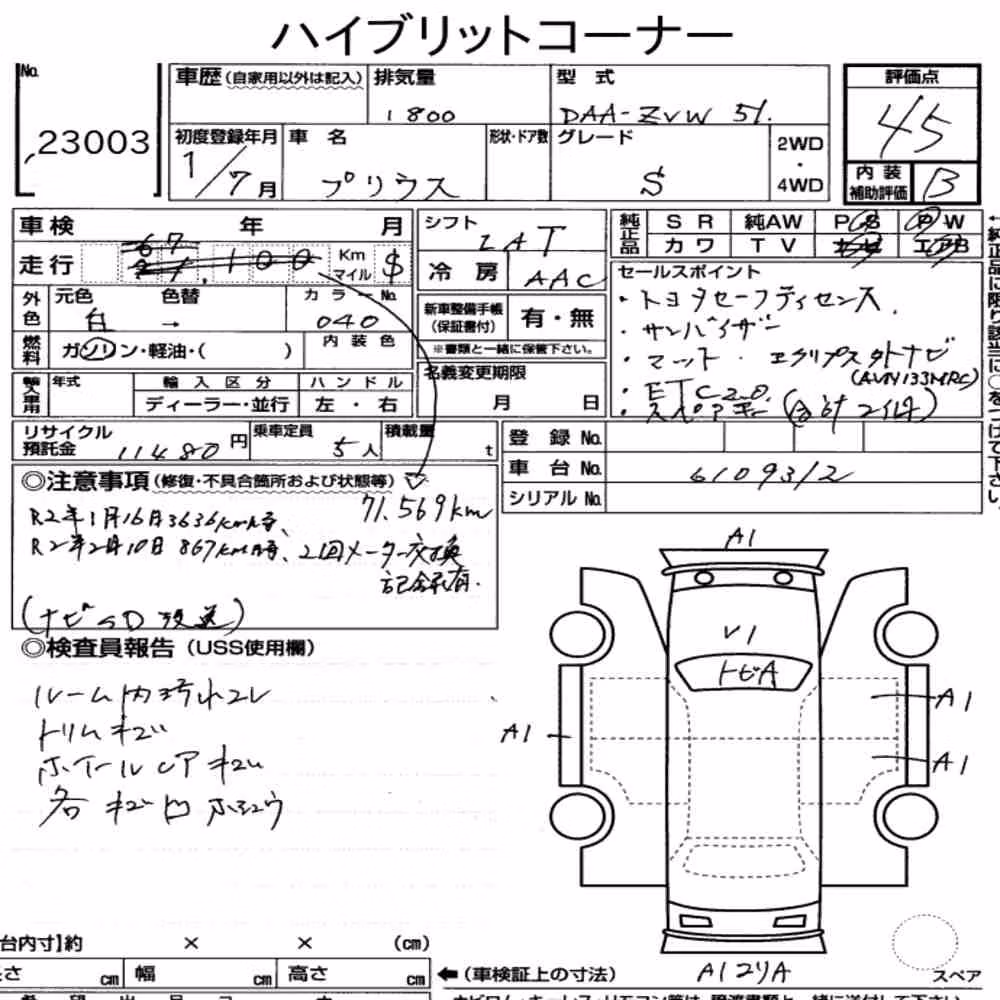 ハイブリットコーナー
No.
23003
車歴(自家用以外は記入)
排気量
1800
型 式
DAA-ZVW 51.
評価点
45
初度登録年月
1/7月
車 名
プリウス
形状・ドア数
グレード
S
2WD
・
4WD
内 装
補助評価
B
車検 年 月
走行 67 27,100 Km マイル $
シフト
IAT
冷 房
AAC
純正品
SR 純AW PS PW
カワ TV エアB
外色
元色 色替 カラーNo.
白 → 040
新車整備手帳
(保証書付)
有・無
※書類と一緒に保管下さい。
セールスポイント
・トヨタセーフティセンス
・サンバイザー
・マット・エクリプス外ナビ
(AVN133MRC)
・ETC2.0
・スペアキー(合計2個)
燃料
ガソリン・軽油・( )
内装色
輸入車用
年式
輸入区分
ハンドル
ディーラー・並行
左・右
名義変更期限
月 日
リサイクル
預託金
11480円
乗車定員
5人
積載量
t
登録 No.
車台 No.
6109312
シリアル No.
◎注意事項(修復・不具合箇所および状態等)
71.569km
R2年1月16日3636km時、
R2年2月10日 867km時、2回メーター交換
記録有.
(ナビSD 後送)
◎検査員報告(USS使用欄)
ルーム内汚れコレ
トリムキズ
ホイールCAキズ
各キズ凹
A1
V1
トビA
A1
A1
A1
A1 2リA
スペア
台内寸】約 × × (cm)
長さ cm 幅 cm 高さ cm
←(車検証上の寸法)